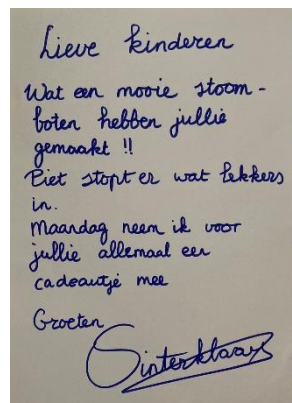 Lieve kinderen
Wat een mooie stoom-
boten hebben jullie
gemaakt !!
Piet stopt er wat lekkers
in.
Maandag neem ik voor
jullie allemaal een
cadeautje mee
Groeten
Sinterklaas